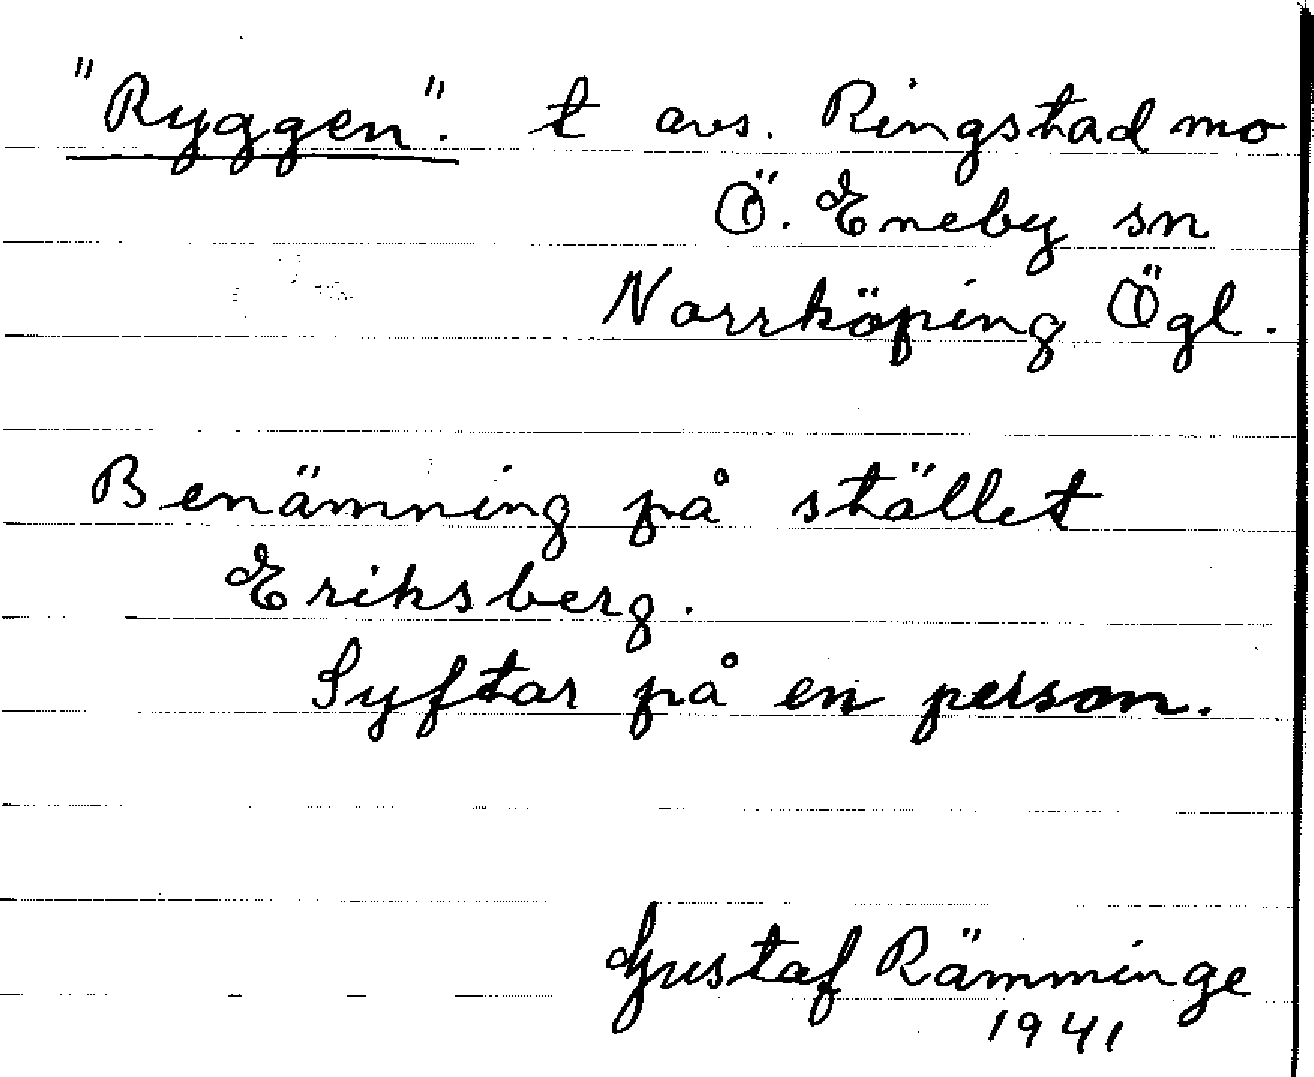 "Ryggen". t avs. Ringstad mo
Ö. Eneby sn
Norrköping Ögl.
Benämning på stället
Eriksberg.
Syftar på en person.
Gustaf Rämminge
1941